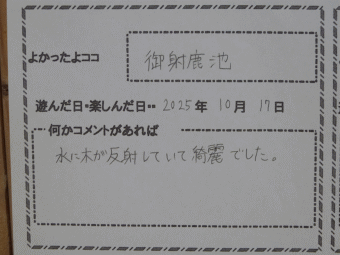 よかったよココ 御射鹿池
遊んだ日・楽しんだ日・・ 2025年 10月 17日
何かコメントがあれば
水に木が反射していて綺麗でした。